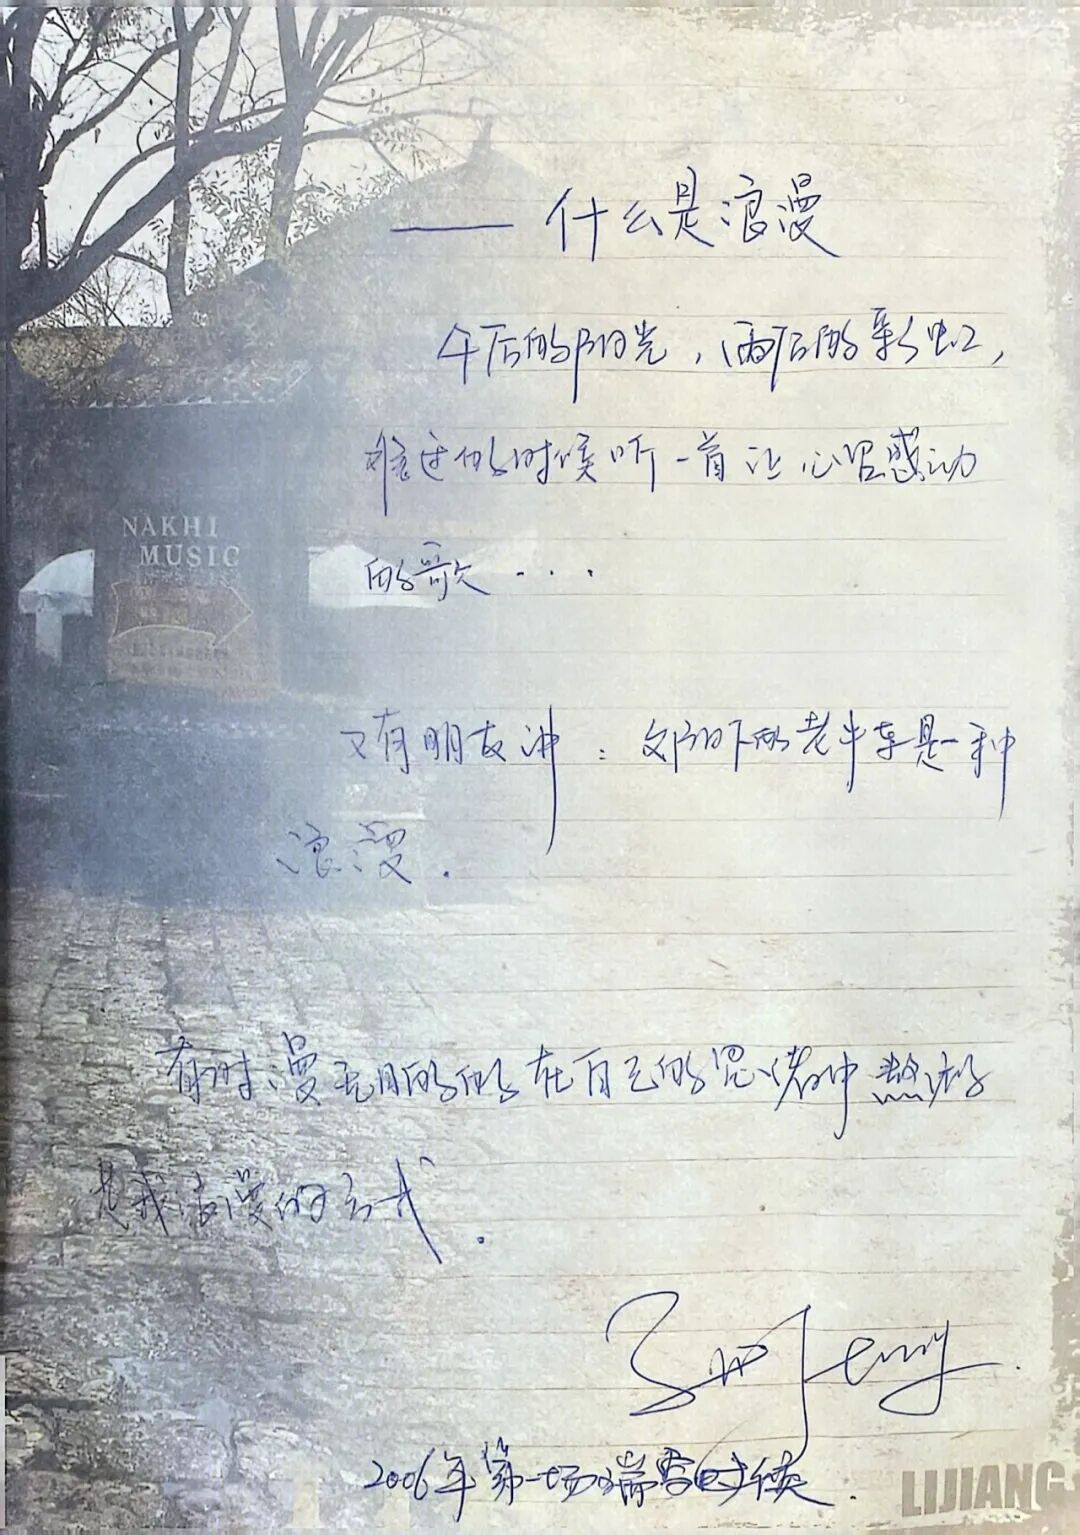 —— 什么是浪漫
午后的阳光，雨后的彩虹，
难过的时候听一首让心窝感动
的歌...
NAKHI
MUSIC
又有朋友冲：夕阳下的老牛车是一种
浪漫.
有时漫无目的的在自己的思绪中
是我浪漫的方式.
2006年第一场瑞雪时候.
LIJIANG